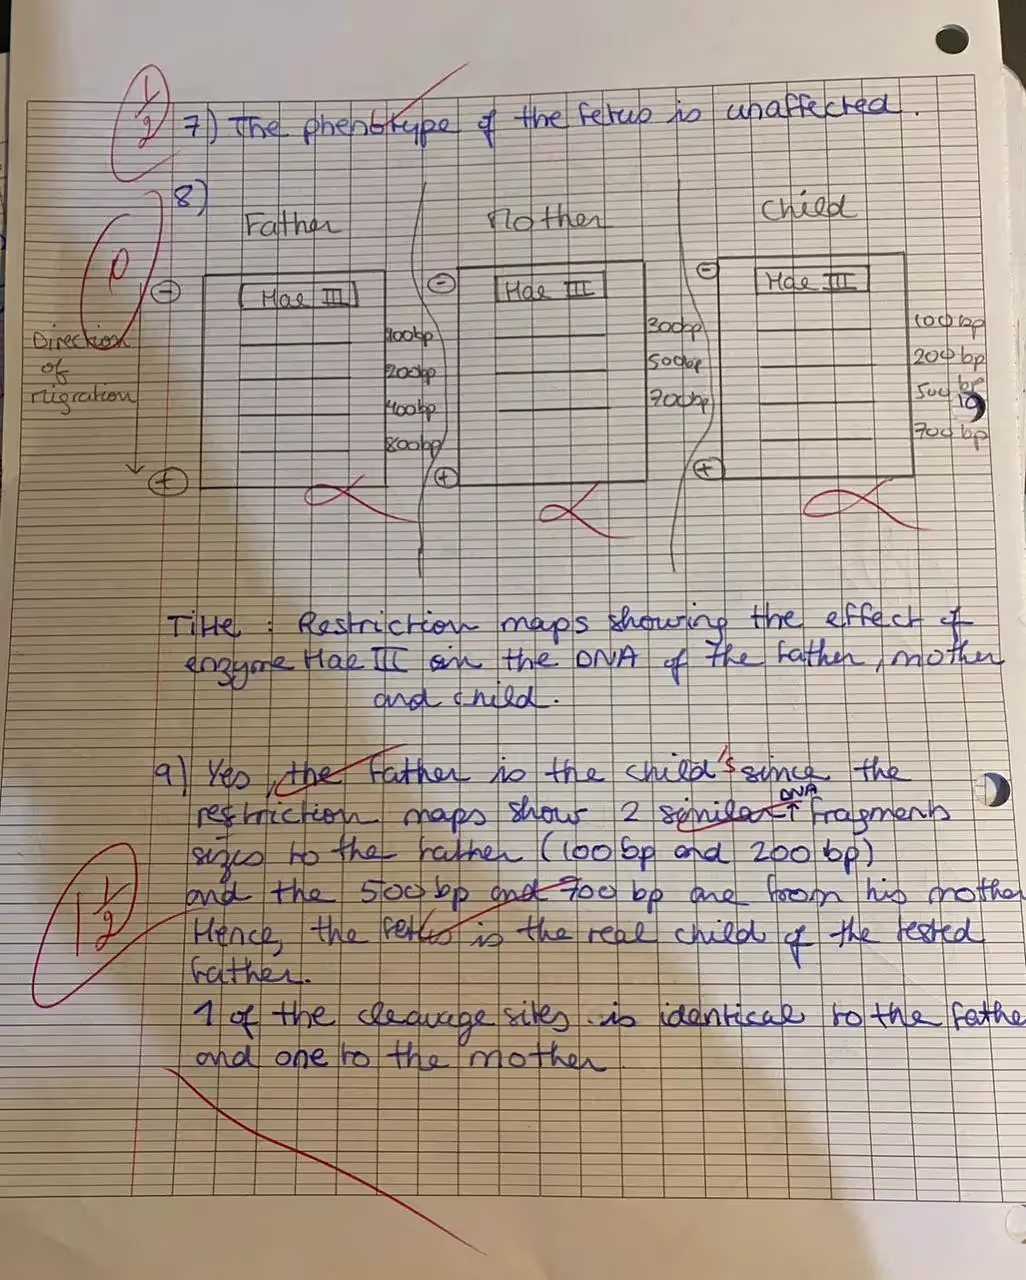 1/2
7) The phenotype of the fetus is unaffected.
8)
Father
Mother
Child
0
⊖
Hae III
⊖
Hae III
⊖
Hae III
Direction
of
migration
100bp
200bp
400bp
800bp
300bp
500bp
700bp
100bp
200bp
500bp
700bp
⊕
⊕
⊕
Title : Restriction maps showing the effect of
enzyme Hae III on the DNA of the father, mother
and child.
9) Yes, the father is the child's since the
DNA
restriction maps show 2 similar ↑ fragments
sizes to the father (100bp and 200bp)
and the 500bp and 700bp are from his mother
Hence, the fetus is the real child of the tested
father.
1 1/2
1 of the cleavage sites is identical to the fathe
and one to the mother